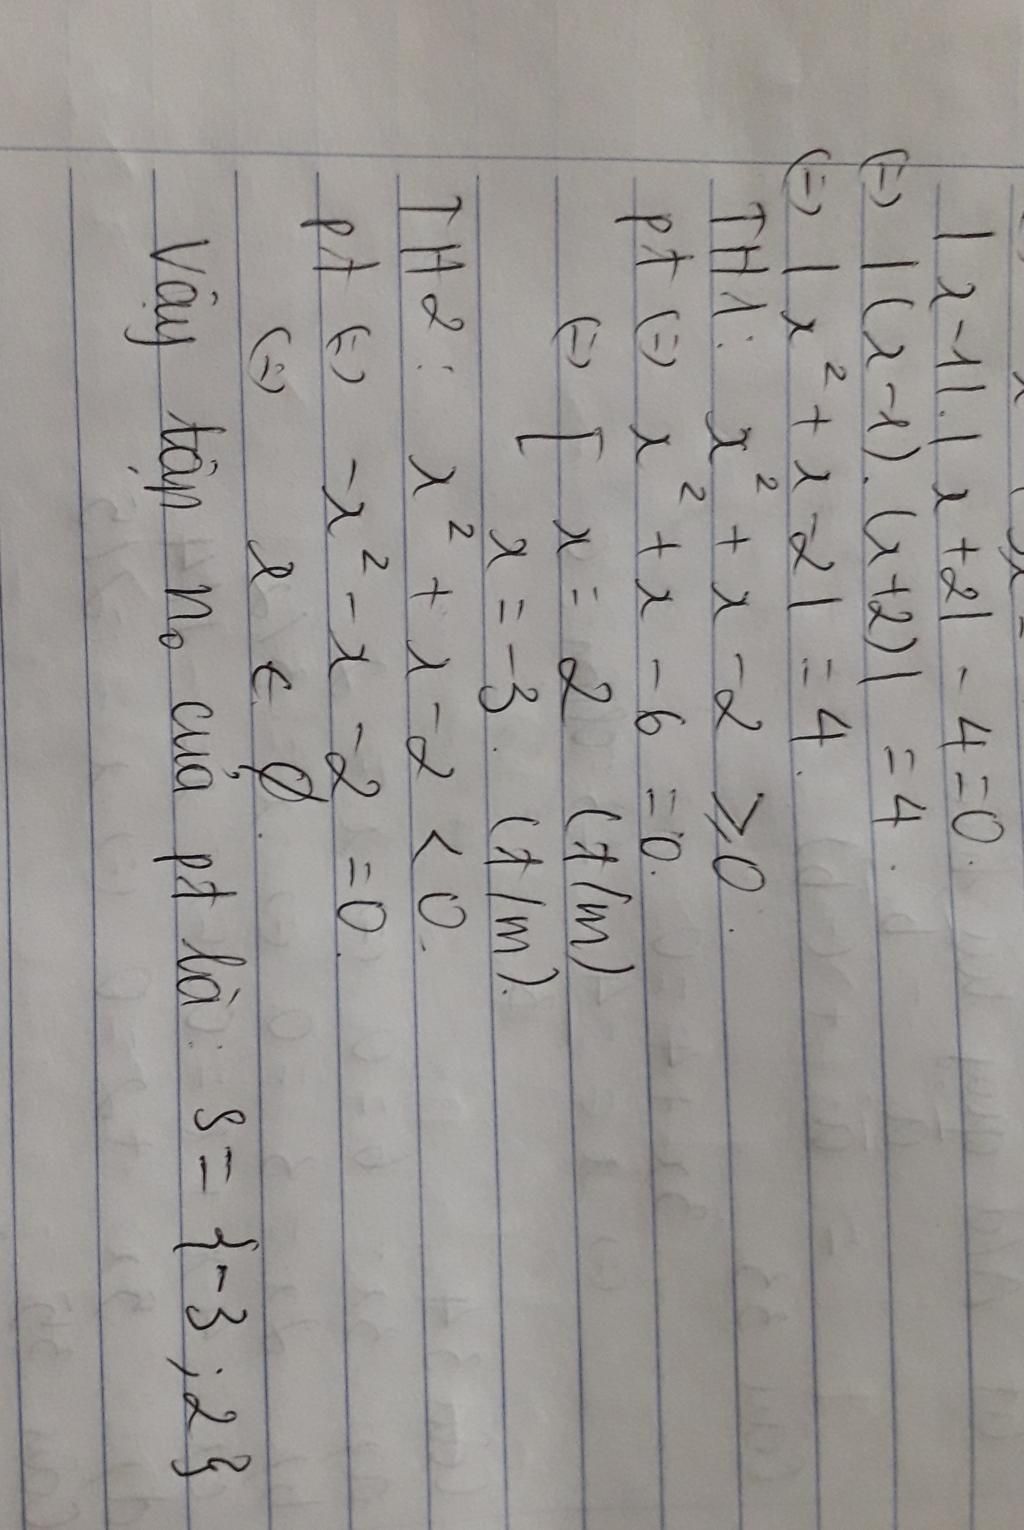 |x-1|.|x+2| - 4 = 0.
(=) |(x-1).(x+2)| = 4.
(=) |x² + x - 2| = 4.
TH1: x² + x - 2 ⩾ 0.
pt (=) x² + x - 6 = 0.
(=) [ x = 2 (t/m)
x = -3. (t/m).
TH2: x² + x - 2 < 0.
pt (=) -x² - x - 2 = 0.
(=) x ∈ ∅.
Vậy tập n₀ của pt là: S = {-3; 2}